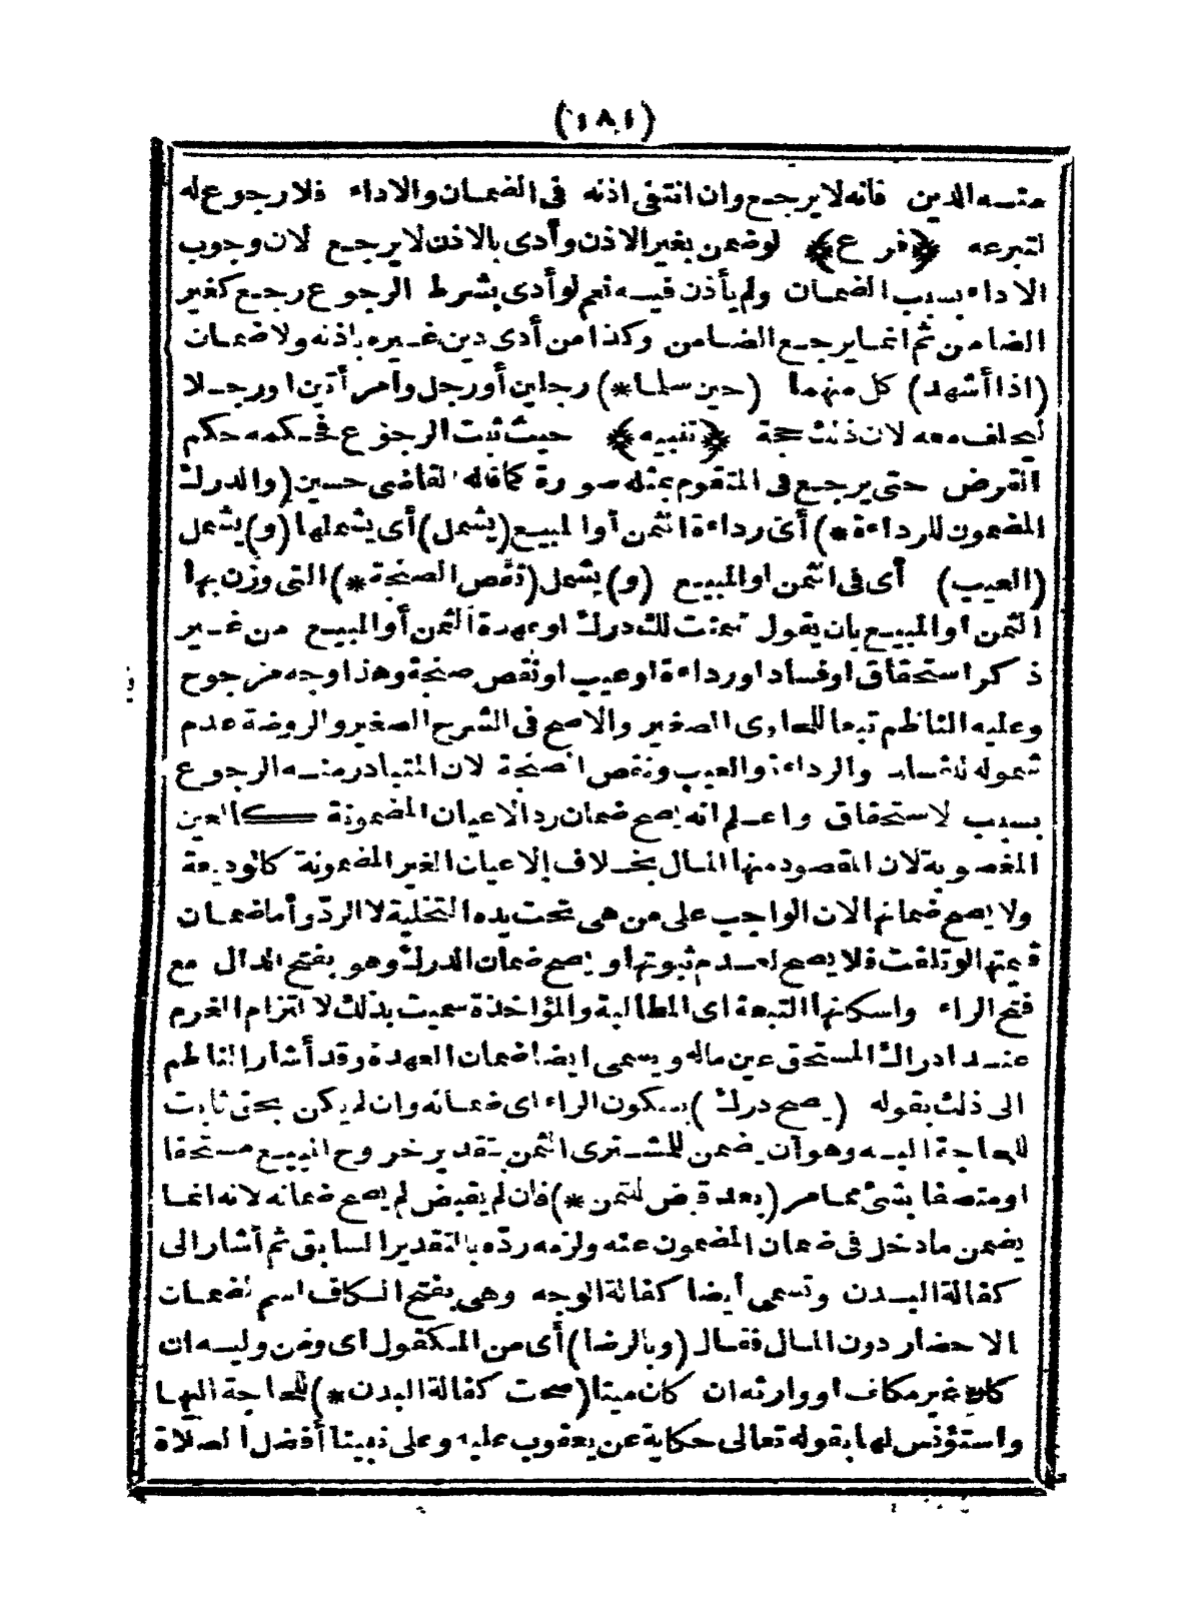 (١٨١)
منه الدين فانه لا يرجع وان انتفى اذنه فى الضمان والاداء فلا رجوع له
لتبرعه ﴿فرع﴾ لو ضمن بغير الاذن وأدى بالاذن لا يرجع لان وجوب
الاداء بسبب الضمان ولم يأذن فيه نعم لو أدى بشرط الرجوع رجع كغير
الضامن ثم انما يرجع الضامن وكذا من أدى دين غيره باذنه ولا ضمان
(اذا أشهد) كل منهما (حين سلما*) رجلين أو رجل وامرأتين او رجلا
ليحلف معه لان ذلك حجة ﴿تنبيه﴾ حيث ثبت الرجوع فحكمه حكم
القرض حتى يرجع فى المتقوم بمثله صورة كما قاله القاضى حسين (والدرك
المضمون للرداءة*) أى رداءة الثمن أو المبيع (يشمل) أى يشملها (و) يشمل
(العيب) أى فى الثمن او المبيع (و) يشمل (نقص الصنجة*) التى وزن بها
الثمن او المبيع بان يقول ضمنت لك درك او عهدة الثمن أو المبيع من غير
ذكر استحقاق او فساد او رداءة او عيب او نقص صنجة وهذا وجه مرجوح
وعليه الناظم تبعا للحاوى الصغير والاصح فى الشرح الصغير والروضة عدم
شموله للفساد والرداءة والعيب ونقص الصنجة لان المتبادر منه الرجوع
بسبب لاستحقاق واعلم انه يصح ضمان رد الاعيان المضمونة كالعين
المغصوبة لان المقصود منها المال بخلاف الاعيان الغير المضمونة كالوديعة
ولا يصح ضمانها لان الواجب على من هى تحت يده التخلية لا الردّ وأما ضمان
قيمتها لو تلفت فلا يصح لعدم ثبوتها و يصح ضمان الدرك وهو بفتح الدال مع
فتح الراء واسكانها التبعة اى المطالبة والمؤاخذة سميت بذلك لا لتزام الغرم
عند ادراك المستحق عين ماله ويسمى ايضا ضمان العهدة وقد أشار الناظم
الى ذلك بقوله (يصح درك) بسكون الراء اى ضمانه وان لم يكن بحق ثابت
للحاجة اليه وهو أن يضمن للمشترى الثمن بتقدير خروج المبيع مستحقا
او متصفا بشئ مما مر (بعد قبض الثمن*) فان لم يقبض لم يصح ضمانه لانه انما
يضمن ما دخل فى ضمان المضمون عنه ولزمه ردّه بالتقدير السابق ثم أشار الى
كفالة البدن وتسمى أيضا كفالة الوجه وهى بفتح الكاف اسم لضمان
الاحضار دون المال فقال (وبالرضا) أى من المكفول اى ومن وليه ان
كان غير مكاف او وارثه ان كان ميتا (صحت كفالة البدن*) للحاجة اليها
واستؤنس لها بقوله تعالى حكاية عن يعقوب عليه وعلى نبينا أفضل الصلاة